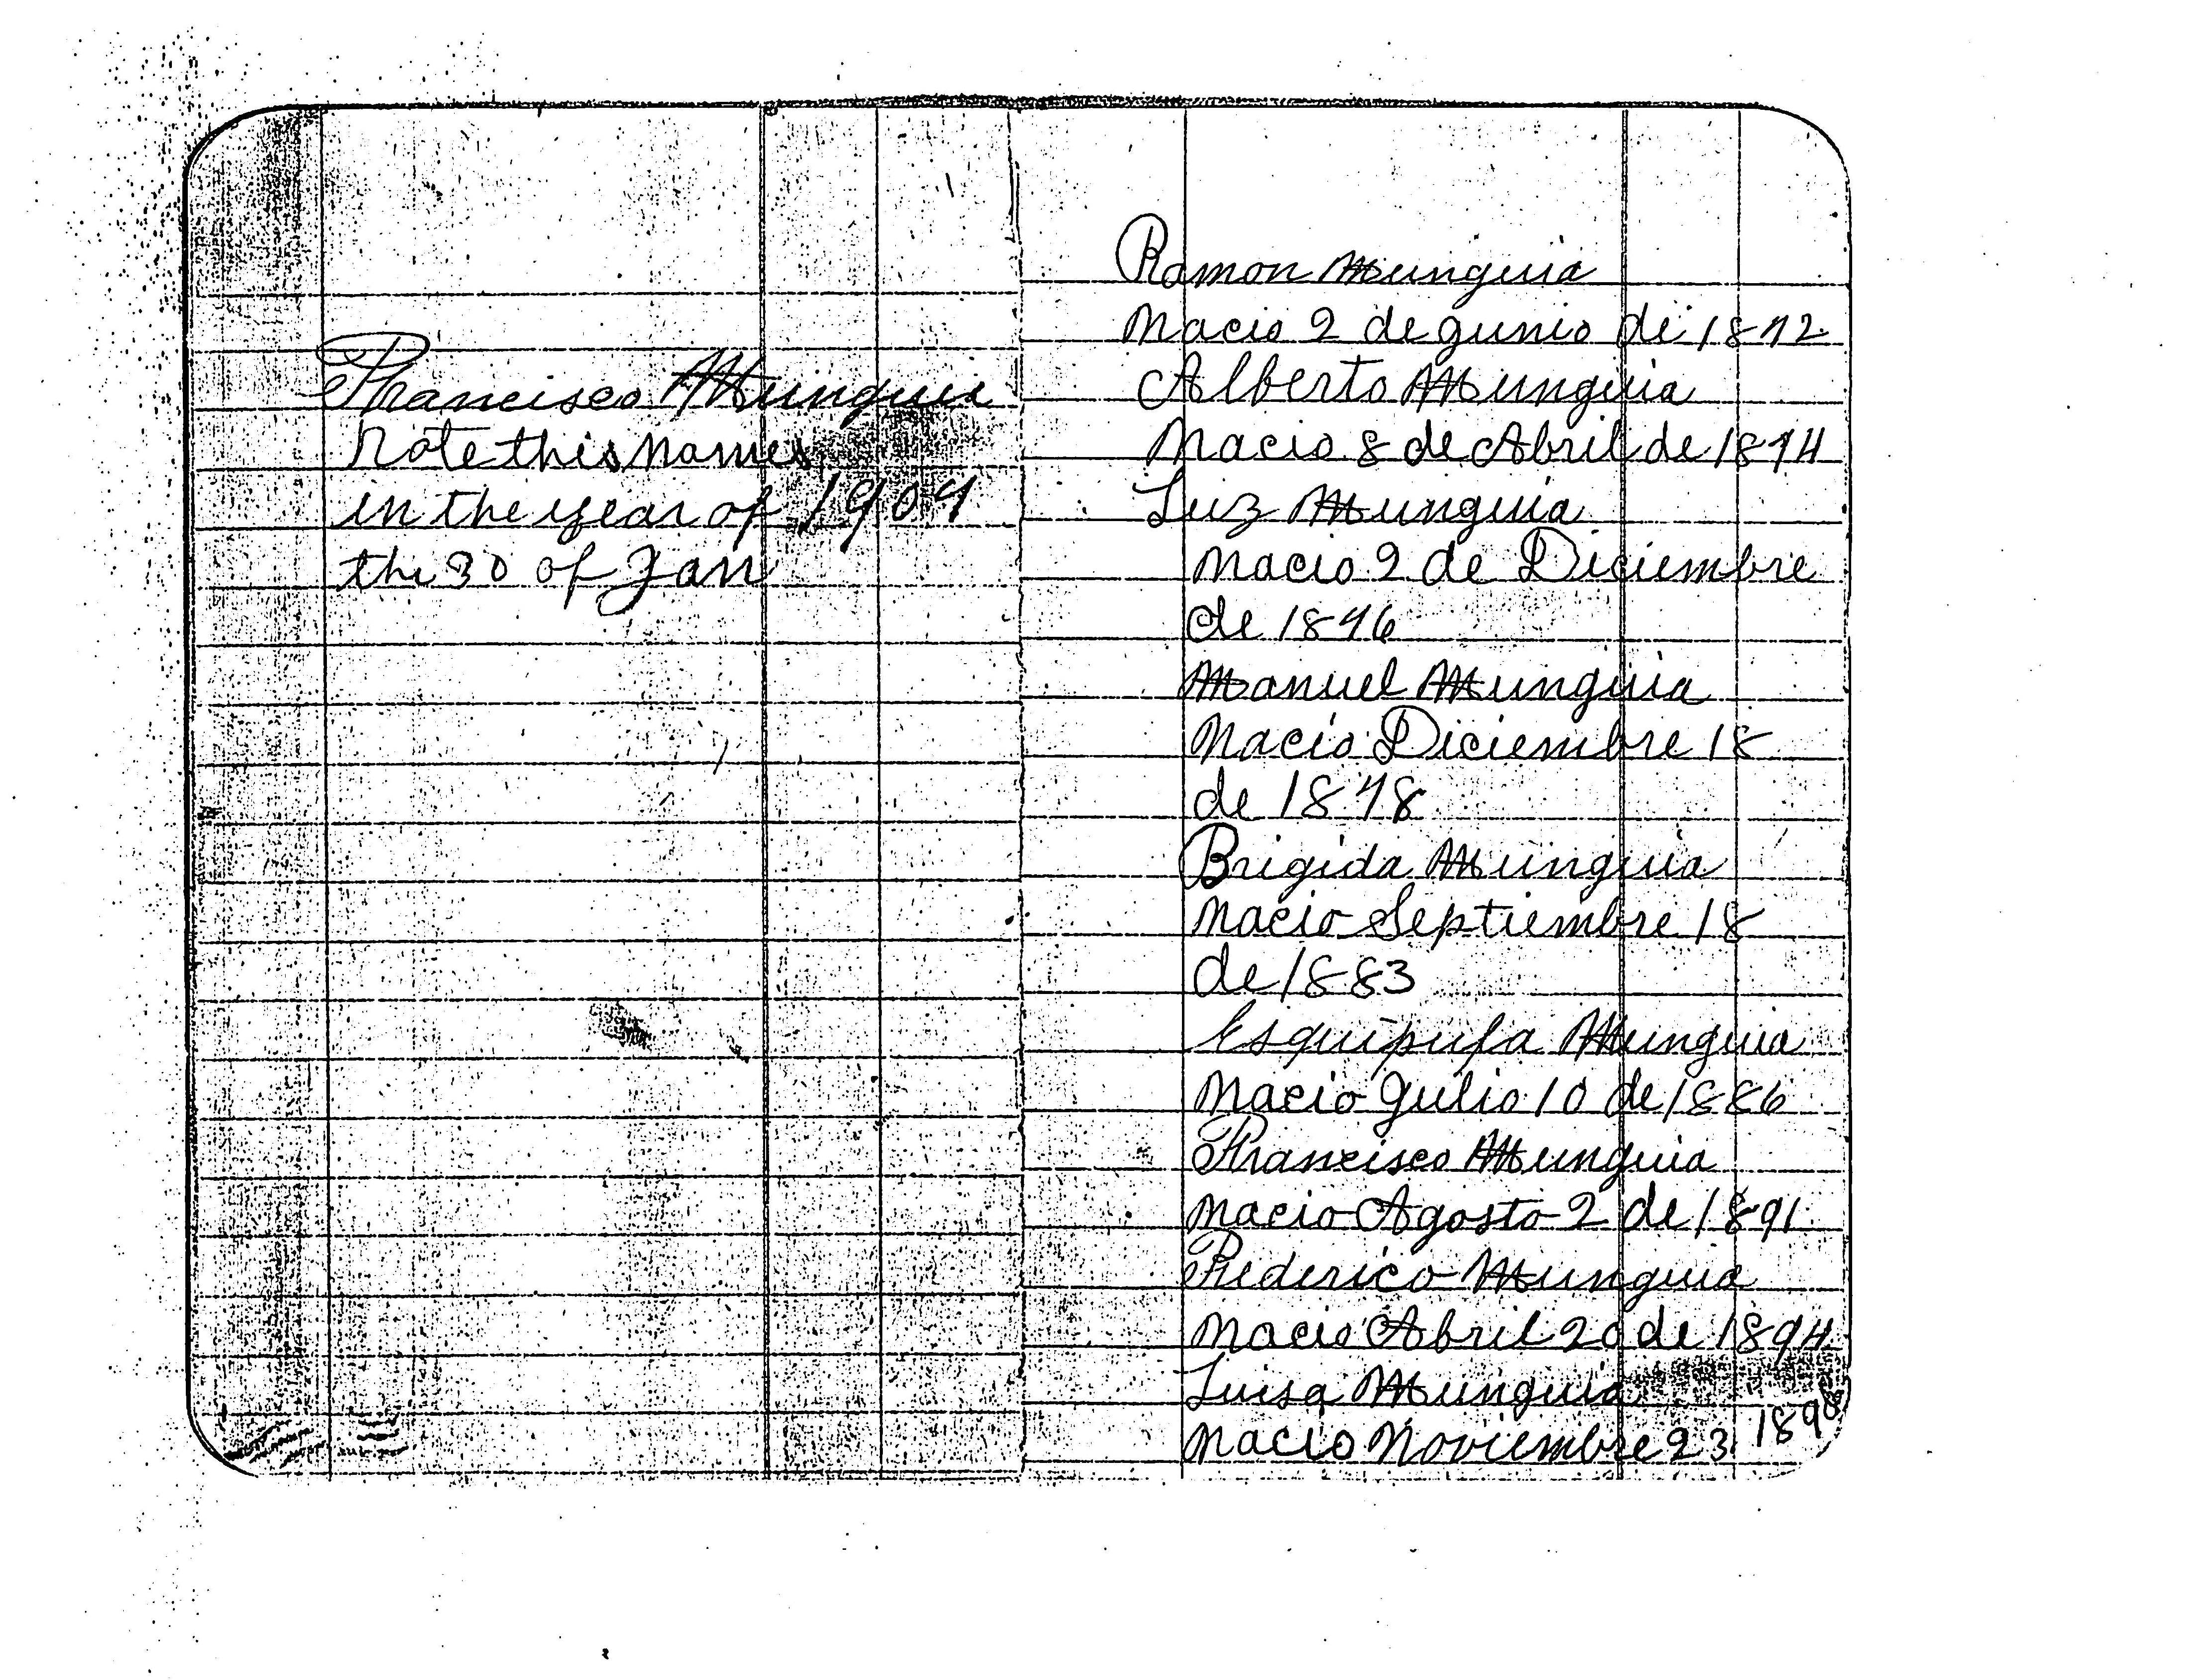 Francisco Munguia
Rote this names
in the year of 1907
the 30 of Jan
Ramon Munguia
Nacio 2 de gunio de 1872
Alberto Munguia
Nacio 8 de Abril de 1874
Luz Munguia
Nacio 2 de Diciembre
de 1876
Manuel Munguia
Nacio Diciembre 18
de 1878
Brigida Munguia
Nacio Septiembre 18
de 1883
Esquipula Munguia
Nacio Julio 10 de 1886
Francisco Munguia
Nacio Agosto 2 de 1891
Frederico Munguia
Nacio Abril 20 de 1894
Luisa Munguia
Nacio Noviembre 23 1898